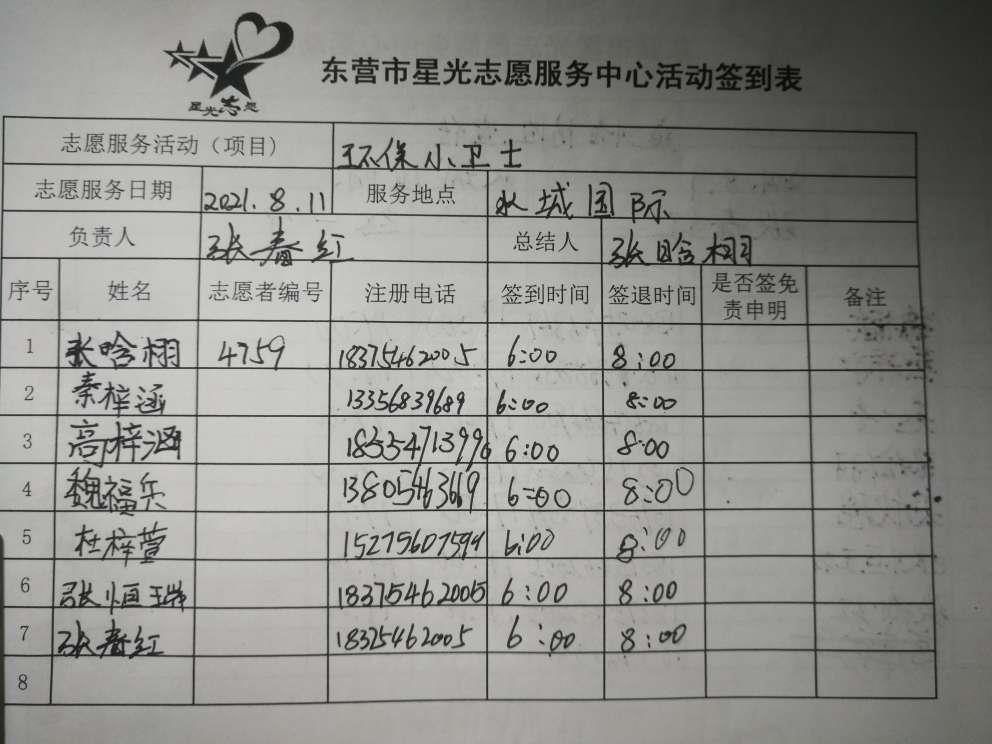 星光志愿
东营市星光志愿服务中心活动签到表
志愿服务活动（项目） 环保小卫士
志愿服务日期 2021.8.11 服务地点 水城国际
负责人 张春红 总结人 张晗栩
序号 姓名 志愿者编号 注册电话 签到时间 签退时间 是否签免责申明 备注
1 张晗栩 4759 18375462005 6:00 8:00
2 秦梓涵 13356839689 6:00 8:00
3 高梓涵 18554713996 6:00 8:00
4 魏福兵 13805463669 6:00 8:00
5 杜梓萱 15275607594 6:00 8:00
6 张恒瑞 18375462005 6:00 8:00
7 张春红 18325462005 6:00 8:00
8